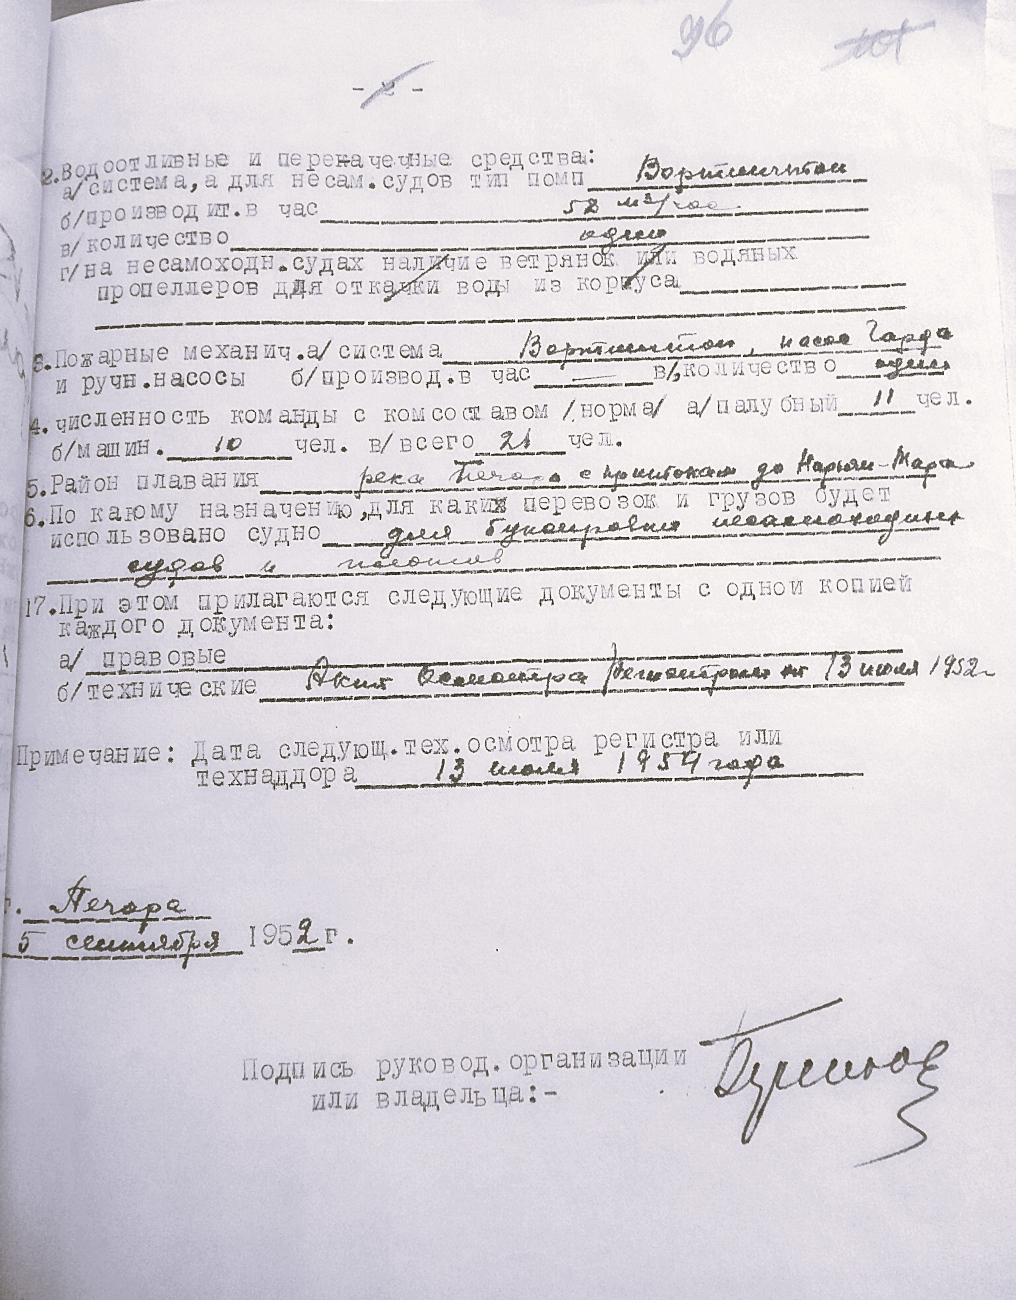 96
- 2 -
2.Водоотливные и перекачечные средства:
а/система,а для несам.судов тип помп Вортингтон
б/производит.в час 58 м³/час
в/количество один
г/на несамоходн.судах наличие ветрянок или водяных
пропеллеров для откачки воды из корпуса
3.Пожарные механич.а/ система Вортингтон, насос Гарда
и ручн.насосы б/производ.в час — в/,количество один
4.численность команды с комсоставом /норма/ а/палубный 11 чел.
б/машин. 10 чел. в/всего 21 чел.
5.Район плавания река Печора с притокам до Нарьян-Мара
6.По какому назначению,для каких перевозок и грузов будет
использовано судно для буксировки несамоходных
судов и плотов
17.При этом прилагаются следующие документы с одной копией
каждого документа:
а/ правовые
б/технические Акт Осмотра Регистром от 13 июля 1952г
Примечание: Дата следующ.тех.осмотра регистра или
технаддора 13 июля 1954 года
г. Печора
5 сентября 1952г.
Подпись руковод.организации
или владельца:-